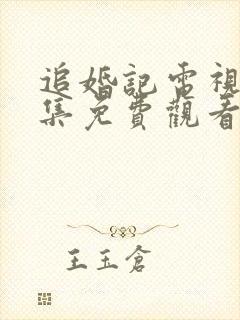 追婚記電視
集免費觀看
王玉倉